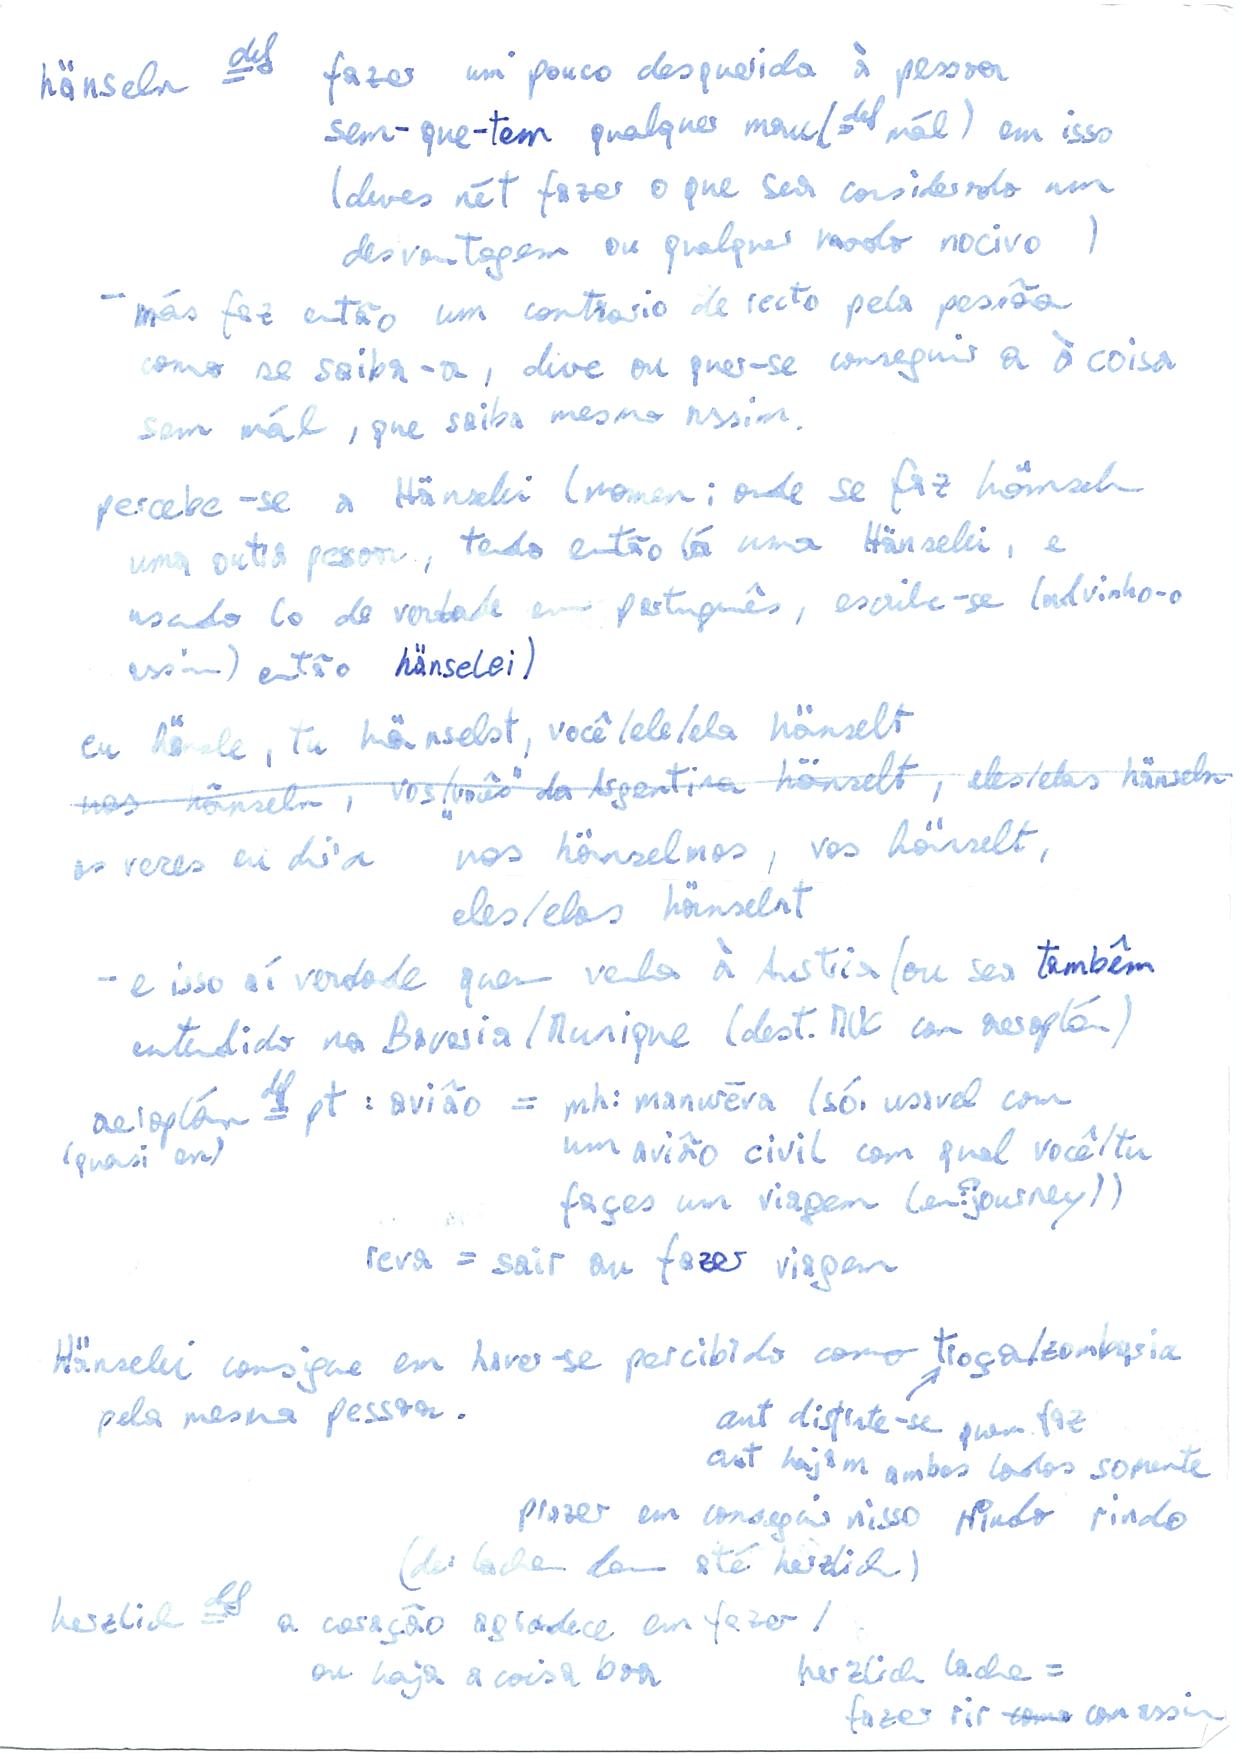 hänseln def= fazer um pouco desquerida à pessoa
sem-que-tem qualquer mau (=def mál) em isso
(deves nét fazer o que sea considerado um
desvantagem ou qualquer modo nocivo )
- más faz então um contrario de recto pela pessõa
como se saiba-a, dive ou quer-se conseguir a à coisa
sem mál, que saiba mesmo assim.
percebe-se a Hänselei (nomen; onde se faz hänseln
uma outra pesoa, tendo então lá uma Hänselei, e
usado lo de verdade em português, escribe-se (advinho-o
assim) então hänselei)
eu hänsle, tu hänselst, você/ele/ela hänselt
nos hänseln, vos/"voiês" da Argentina hänselt, eles/elas hänseln
as vezes eu di'a nos hänselmos, vos hänselt,
eles/elas hänselnt
- e isso aí verdade quem venha à Austria (ou sea tambêm
entendido na Bavaria/Munique (dest. MUC com aeroplán)
aeroplán def= pt: avião = mh: manurēva (só. usavel com
(quasi en) um avião civil com qual você/tu
façes um viagem (en: journey))
reva = sair au fazer viagem
Hänselei consigue em haver-se percibido como troça/zombaria
pela mesma pessoa.
aut disfrute-se quem faz
aut hajam ambos lados somente
prazer em conseguir nisso rindo rindo
(der lache dann até herzlich)
herzlich def= a coração agradece em fazer /
ou haja a coisa boa herzlich lache =
fazer rir como com assim